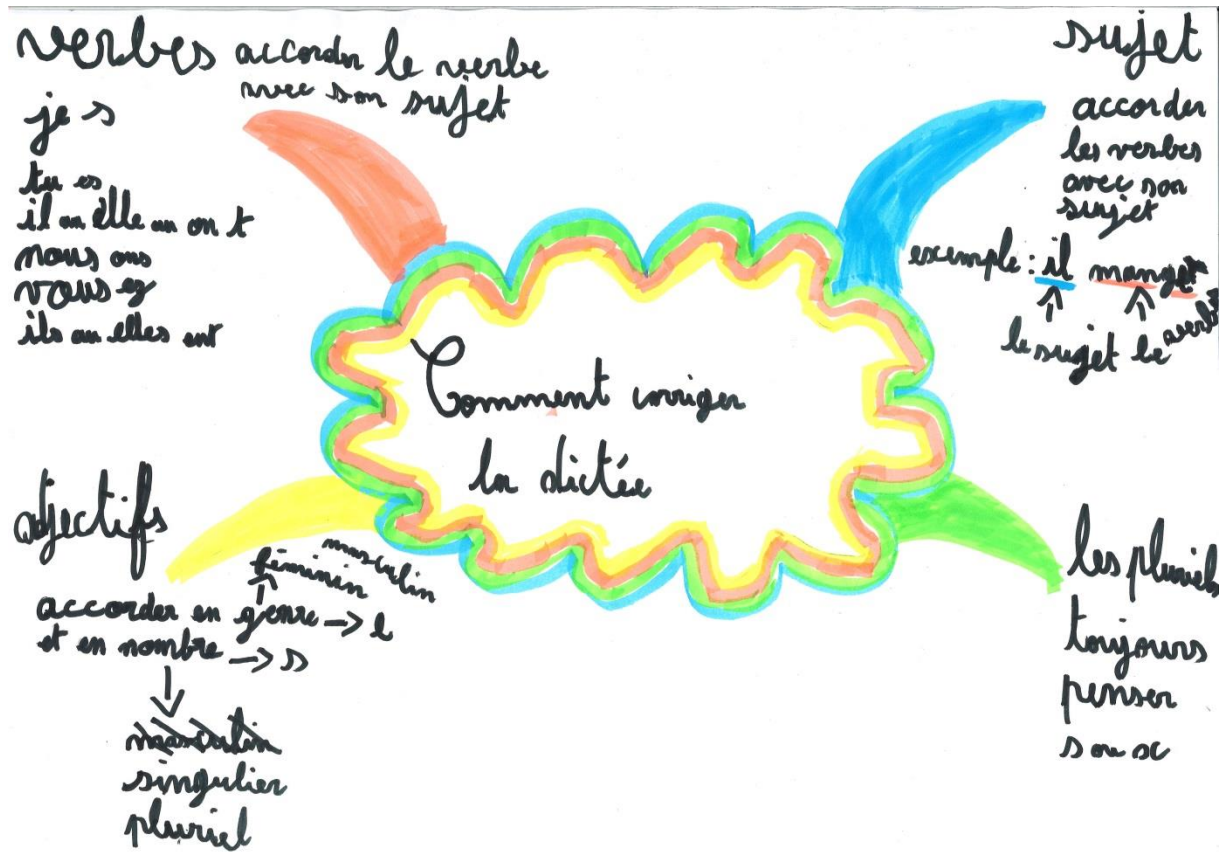 verbes
accorder le verbe
avec son sujet
je s
tu es
il ou elle ou on t
nous ons
vous ez
ils ou elles ent
sujet
accorder
les verbes
avec son
sujet
exemple : il mange
le sujet le verbe
Comment corriger
la dictée
adjectifs
féminin masculin
accorder en genre → e
et en nombre → s
masculin
singulier
pluriel
les pluriels
toujours
penser
s ou x